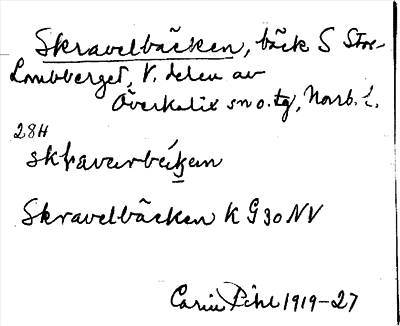 Skravelbäcken, bäck S Stor-
Lombberget, V. delen av
Överkalix sn o. tg, Norrb. l.
284
skravarbäkan
Skravelbäcken K G30 NV
Carin Pihl 1919-27